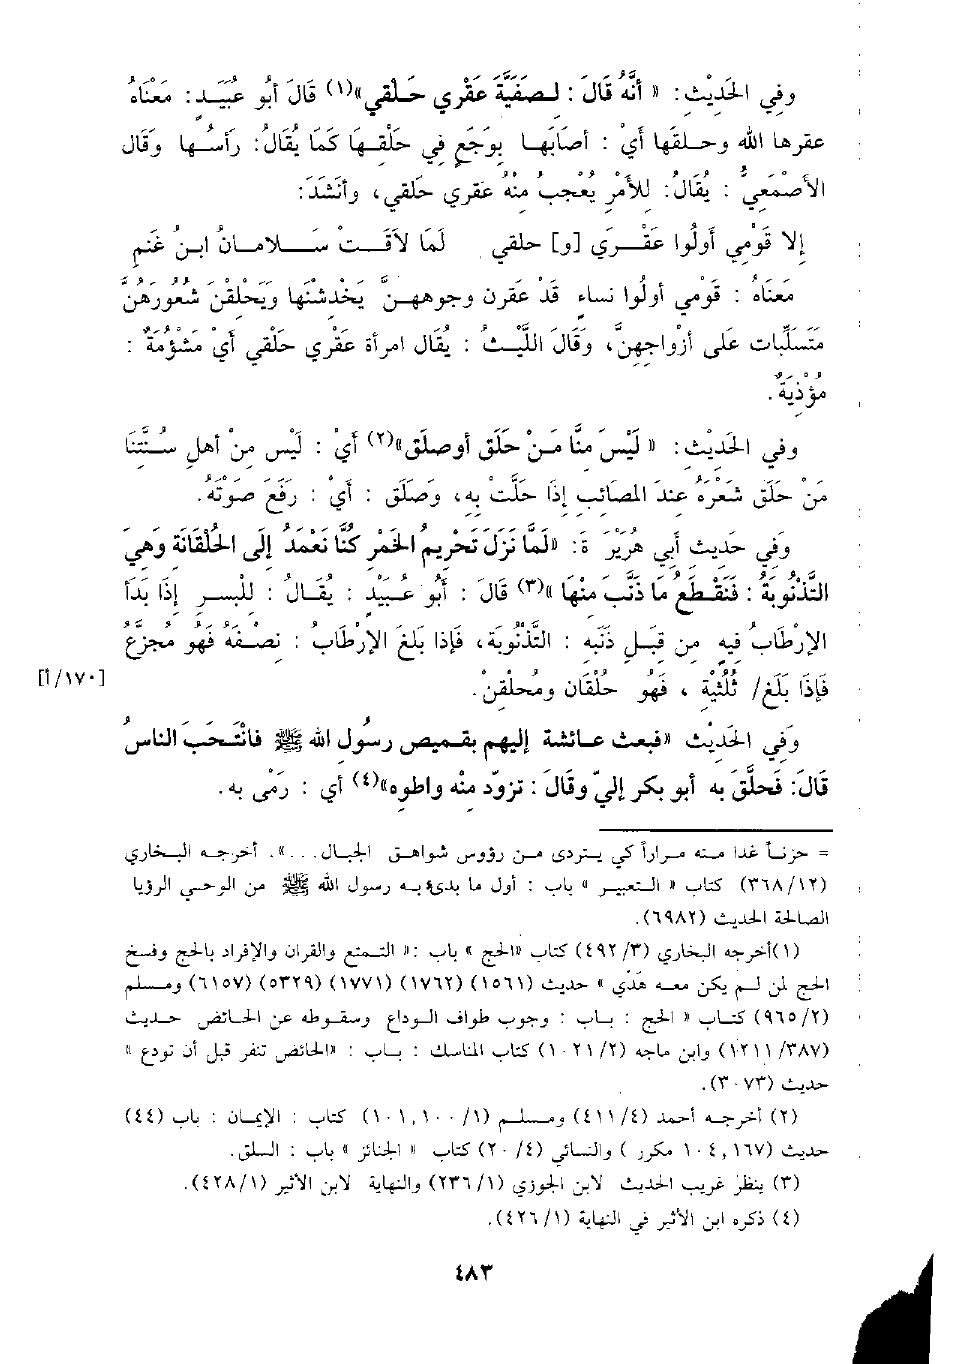 وفي الحَدِيْثِ: « أنَّهُ قَالَ : لـصَفَيَّةَ عَقْري حَـلْقي»(١) قَالَ أبُو عُبَيَـدٍ: مَعْنَاهُ
عقرها الله وحـلقَها أيْ : أصَابَهـا بِوَجَعٍ فِي حَلْقِـهَا كَمَا يُقَالُ: رَأسُـها وقَال
الأصْمَعيُّ : يُقَالُ: للأمْرِ يُعْجبُ مِنْهُ عَقري حَلقي، وأنْشَدَ:
إلا قَوْمِي أولُوا عَقْـرَي [و] حلقي لَمَا لاَقَـتْ سَـلامـانُ ابـنُ غَنمِ
مَعنَاهُ : قَومي أولُوا نساءٍ قَدْ عَقرن وجوههـنَّ يَخْدشْنَها وَيَحْلِقْن شُعُورَهُنَّ
مَتَسَلِّبَات عَلى أزْواجِهِنَّ، وَقَالَ اللَّيْـثُ : يُقَال امرأة عَقْري حَلْقي أيْ مَشْؤمَةٌ :
مُؤْذِيَةٌ.
وفي الحَدِيْثِ: « لَيْسَ مَنَّا مَـنْ حَلَق أوصلَق»(٢) أَيْ : لَيْس مِنْ أهلِ سُـنَّتِنَا
مَنْ حَلَق شَعْرَهُ عِندَ المصَائبِ إذَا حَلَّتْ بِهِ، وَصَلَق : أيْ : رَفَعَ صَوتَهُ.
وَفي حَدِيثِ أَبِي هُرَيْرَ ةَ: «لَمَّا نَزَلَ تَحْرِيمُ الخَمْرِ كُنَّا نَعْمَدُ إلَى الحُلْقَانَة وَهيَ
التَّذْنُوبَةُ : فَنَقْـطَعُ مَا ذَنَّبَ مِنْهَا »(٣) قَالَ : أَبُو عُـبَيْدٍ : يُقَـالُ : للبُسرِ إذَا بَدَأَ
الإرْطَابُ فيهِ مِن قِبَـلِ ذَنَبِه : التَّذْنُوبَة، فَإذا بَلَغَ الإرْطَابُ : نِصْـفَهُ فَهُو مجزَّعٌ
فَإذَا بَلَغَ/ ثُلُثَيْهِ ، فَهُو حُلْقَان ومُحلْقِنْ.
[١٧٠/أ]
وَفي الحَدِيْثِ «فبعث عـائشة إليهم بقـميص رسُول الله ﷺ فانْتَـحَبَ الناسُ
قَالَ: فَحلَّق به أبو بكر إليّ وقَالَ : تزودّ منْه واطوه»(٤) أي : رَمْى به.
= حزنـاً غدا منه مـراراً كي يـتردى مـن رؤوس شواهـق الجبـال...». أخرجـه البـخاري
(٣٦٨/١٢) كتاب « الـتعبيـر » باب : أول ما بدئ بـه رسول الله ﷺ من الوحـي الرؤيا
الصالحة الحديث (٦٩٨٢).
(١)أخرجه البخاري (٤٩٢/٣) كتاب «الحج » باب :« التـمتع والقران والإفراد بالحج وفسخ
الحج لمن لـم يكن معـه هَدْي » حديث (١٥٦١) (١٧٦٢) (١٧٧١) (٥٣٢٩) (٦١٥٧) ومـسلم
(٩٦٥/٢) كتـاب « الحج : بـاب : وجوب طواف الـوداع وسقـوطه عن الحـائض حـديث
(١٢١١/٣٨٧) وابن ماجه (١٠٢١/٢) كتاب المناسك : بـاب : «الحائض تنفر قبل أن تودع »
حديث (٣٠٧٣).
(٢) أخرجـه أحمد (٤١١/٤) ومـسلـم (١٠١,١٠٠/١) كتاب : الإيمـان : باب (٤٤)
حديث (١٠٤,١٦٧ مكرر ) والنسائي (٢٠/٤) كتاب « الجنائز » باب : السلق.
(٣) ينظر غريب الحديث لابن الجوزي (٢٣٦/١) والنهاية لابن الأثير (٤٢٨/١).
(٤) ذكره ابن الأثير في النهاية (٤٢٦/١).
٤٨٣